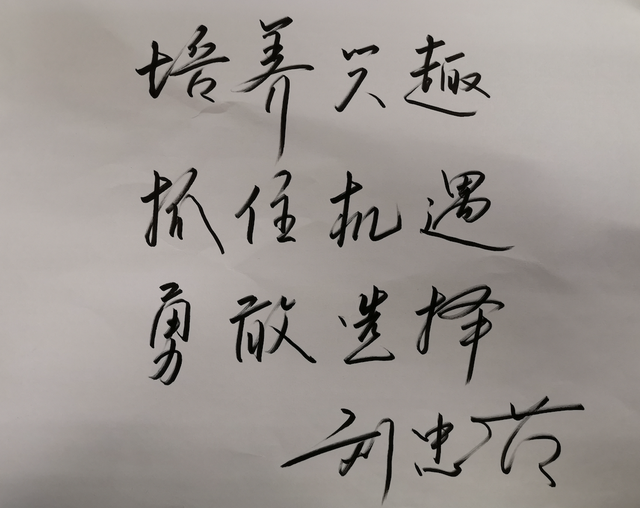 培养兴趣
抓住机遇
勇敢选择
刘忠范